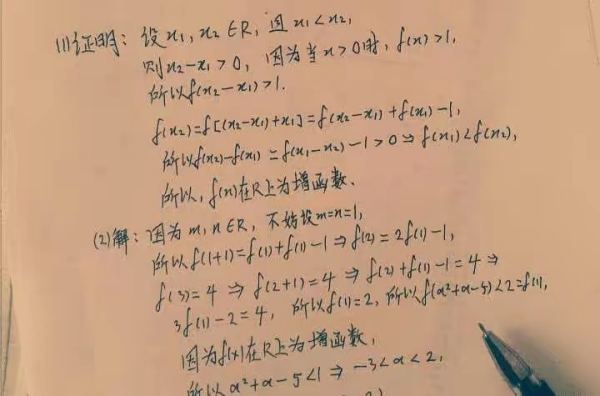 (1)证明：设x₁,x₂∈R，且x₁<x₂，
则x₂-x₁>0，因为当x>0时，f(x)>1，
所以f(x₂-x₁)>1.
f(x₂)=f[(x₂-x₁)+x₁]=f(x₂-x₁)+f(x₁)-1，
所以f(x₂)-f(x₁)=f(x₁-x₂)-1>0⇒f(x₁)<f(x₂)，
所以，f(x)在R上为增函数.
(2)解：因为m,n∈R，不妨设m=n=1，
所以f(1+1)=f(1)+f(1)-1⇒f(2)=2f(1)-1，
f(3)=4⇒f(2+1)=4⇒f(2)+f(1)-1=4⇒
3f(1)-2=4，所以f(1)=2，所以f(a²+a-5)<2=f(1)，
因为f(x)在R上为增函数，
所以a²+a-5<1⇒-3<a<2，